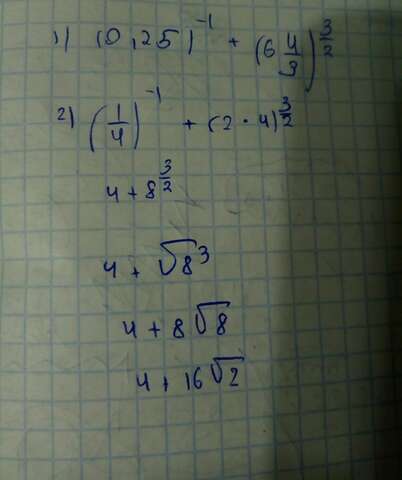 1) (0,25)^{-1} + (6 4/9)^{3/2}
2) (1/4)^{-1} + (2 · 4)^{3/2}
4 + 8^{3/2}
4 + √8^3
4 + 8√8
4 + 16√2